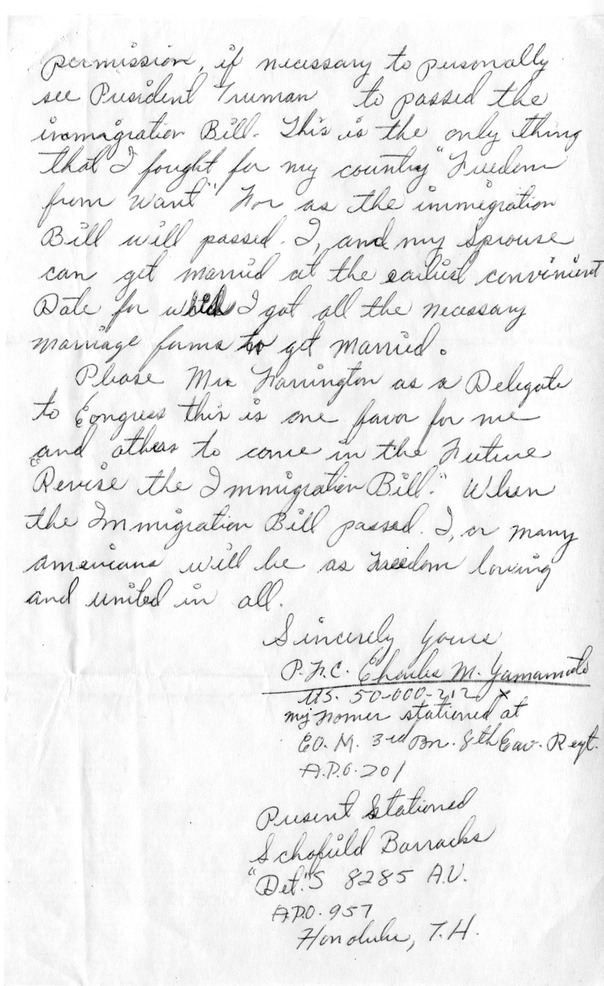 permission, if necessary to personally
see President Truman to passed the
immigration Bill. This is the only thing
that I fought for my country "Freedom
from want" For as the immigration
Bill will passed. I, and my Sprouse
can get married at the earliest convinient
Date for which I got all the necessary
marriage forms to get married.
Please Mrs Farrington as a Delegate
to Congress this is one favor for me
and others to come in the Future
"Revise the Immigration Bill." When
the Immigration Bill passed. I, or many
americans will be as Freedom loving
and united in all.
Sincerely Yours
P.F.C. Charles M. Yamamoto
U.S. 50-000-212 x
my Former stationed at
CO. M. 3rd Bn. 8th Cav. Regt.
A.P.O. 201
Present Stationed
Schofield Barracks
"Det." S 8285 A.U.
A.P.O. 957
Honolulu, T.H.